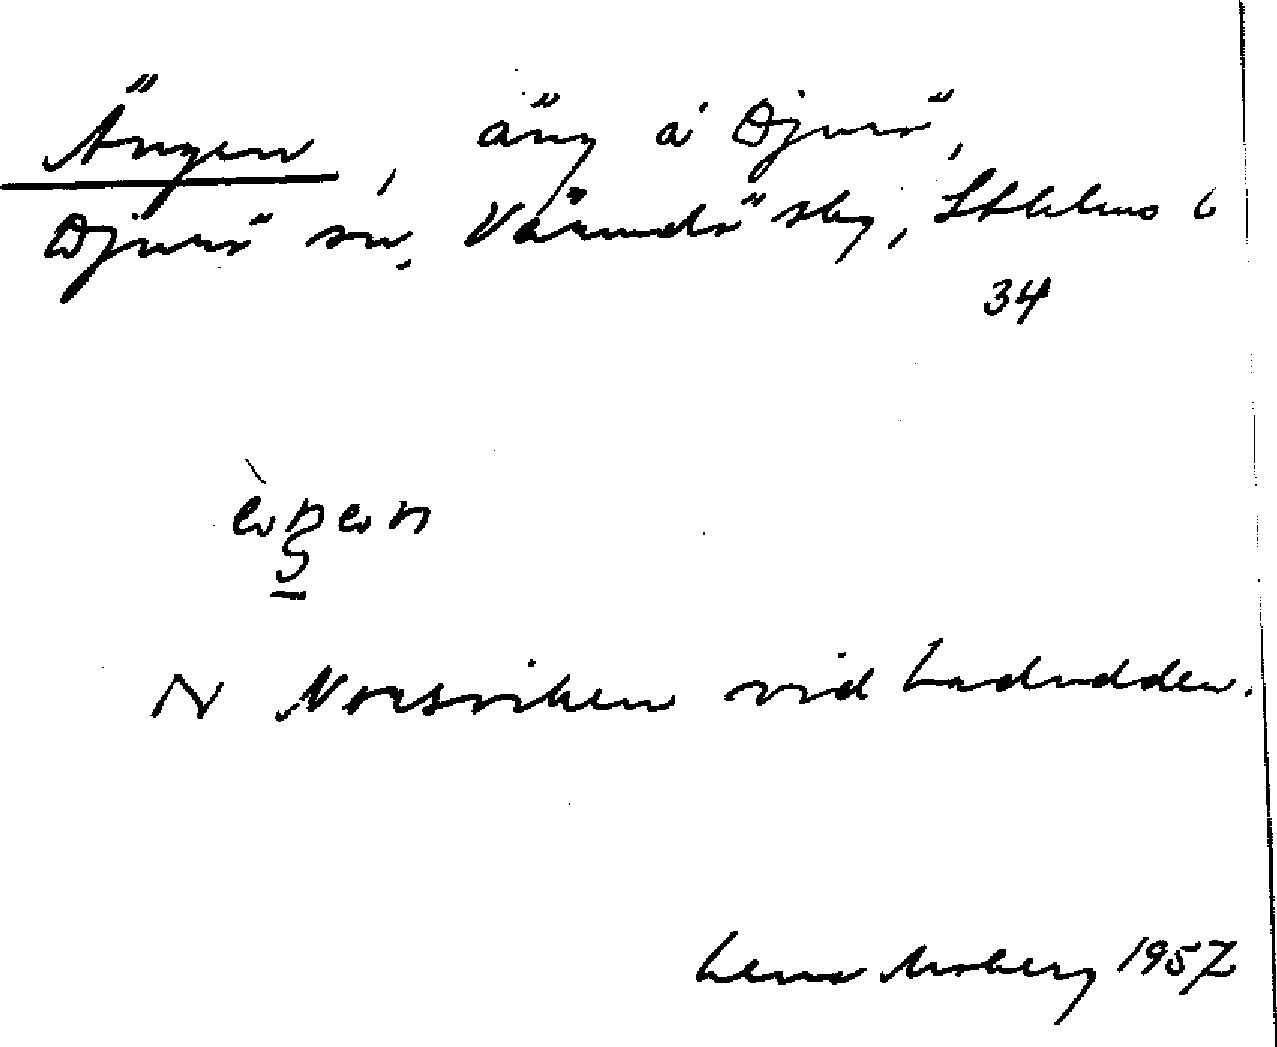 Ängen, äng å Djurö,
Djurö sn. Värmdö sky, Sthlms l
34
N Norsviken vid Ladudden.
Lena Moberg 1957